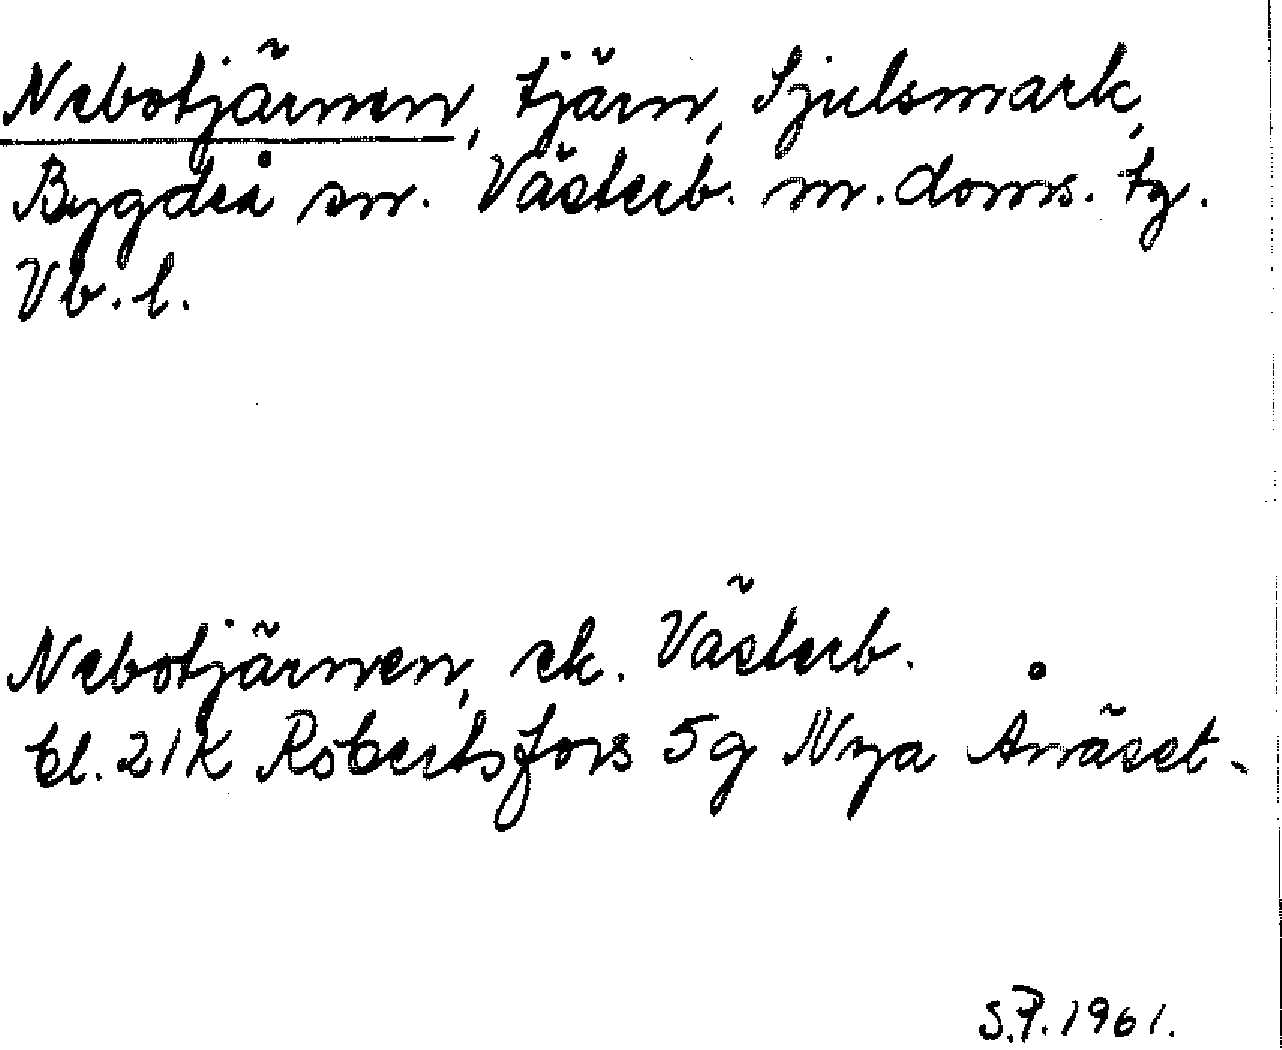 Nebotjärnen, tjärn, Sjulsmark,
Bygdeå sn. Västerb. m. doms. tg.
Vb. l.
Nebotjärnen, ek. Västerb.
bl. 21K Robertsfors 5g Nya Ånäset-
S.P. 1961.